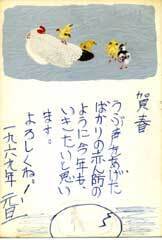 賀春
うぶ声をあげた
ばかりの赤ん坊の
ように今年も
いきたいと思い
ます。
よろしくね!
一九六九年 元旦